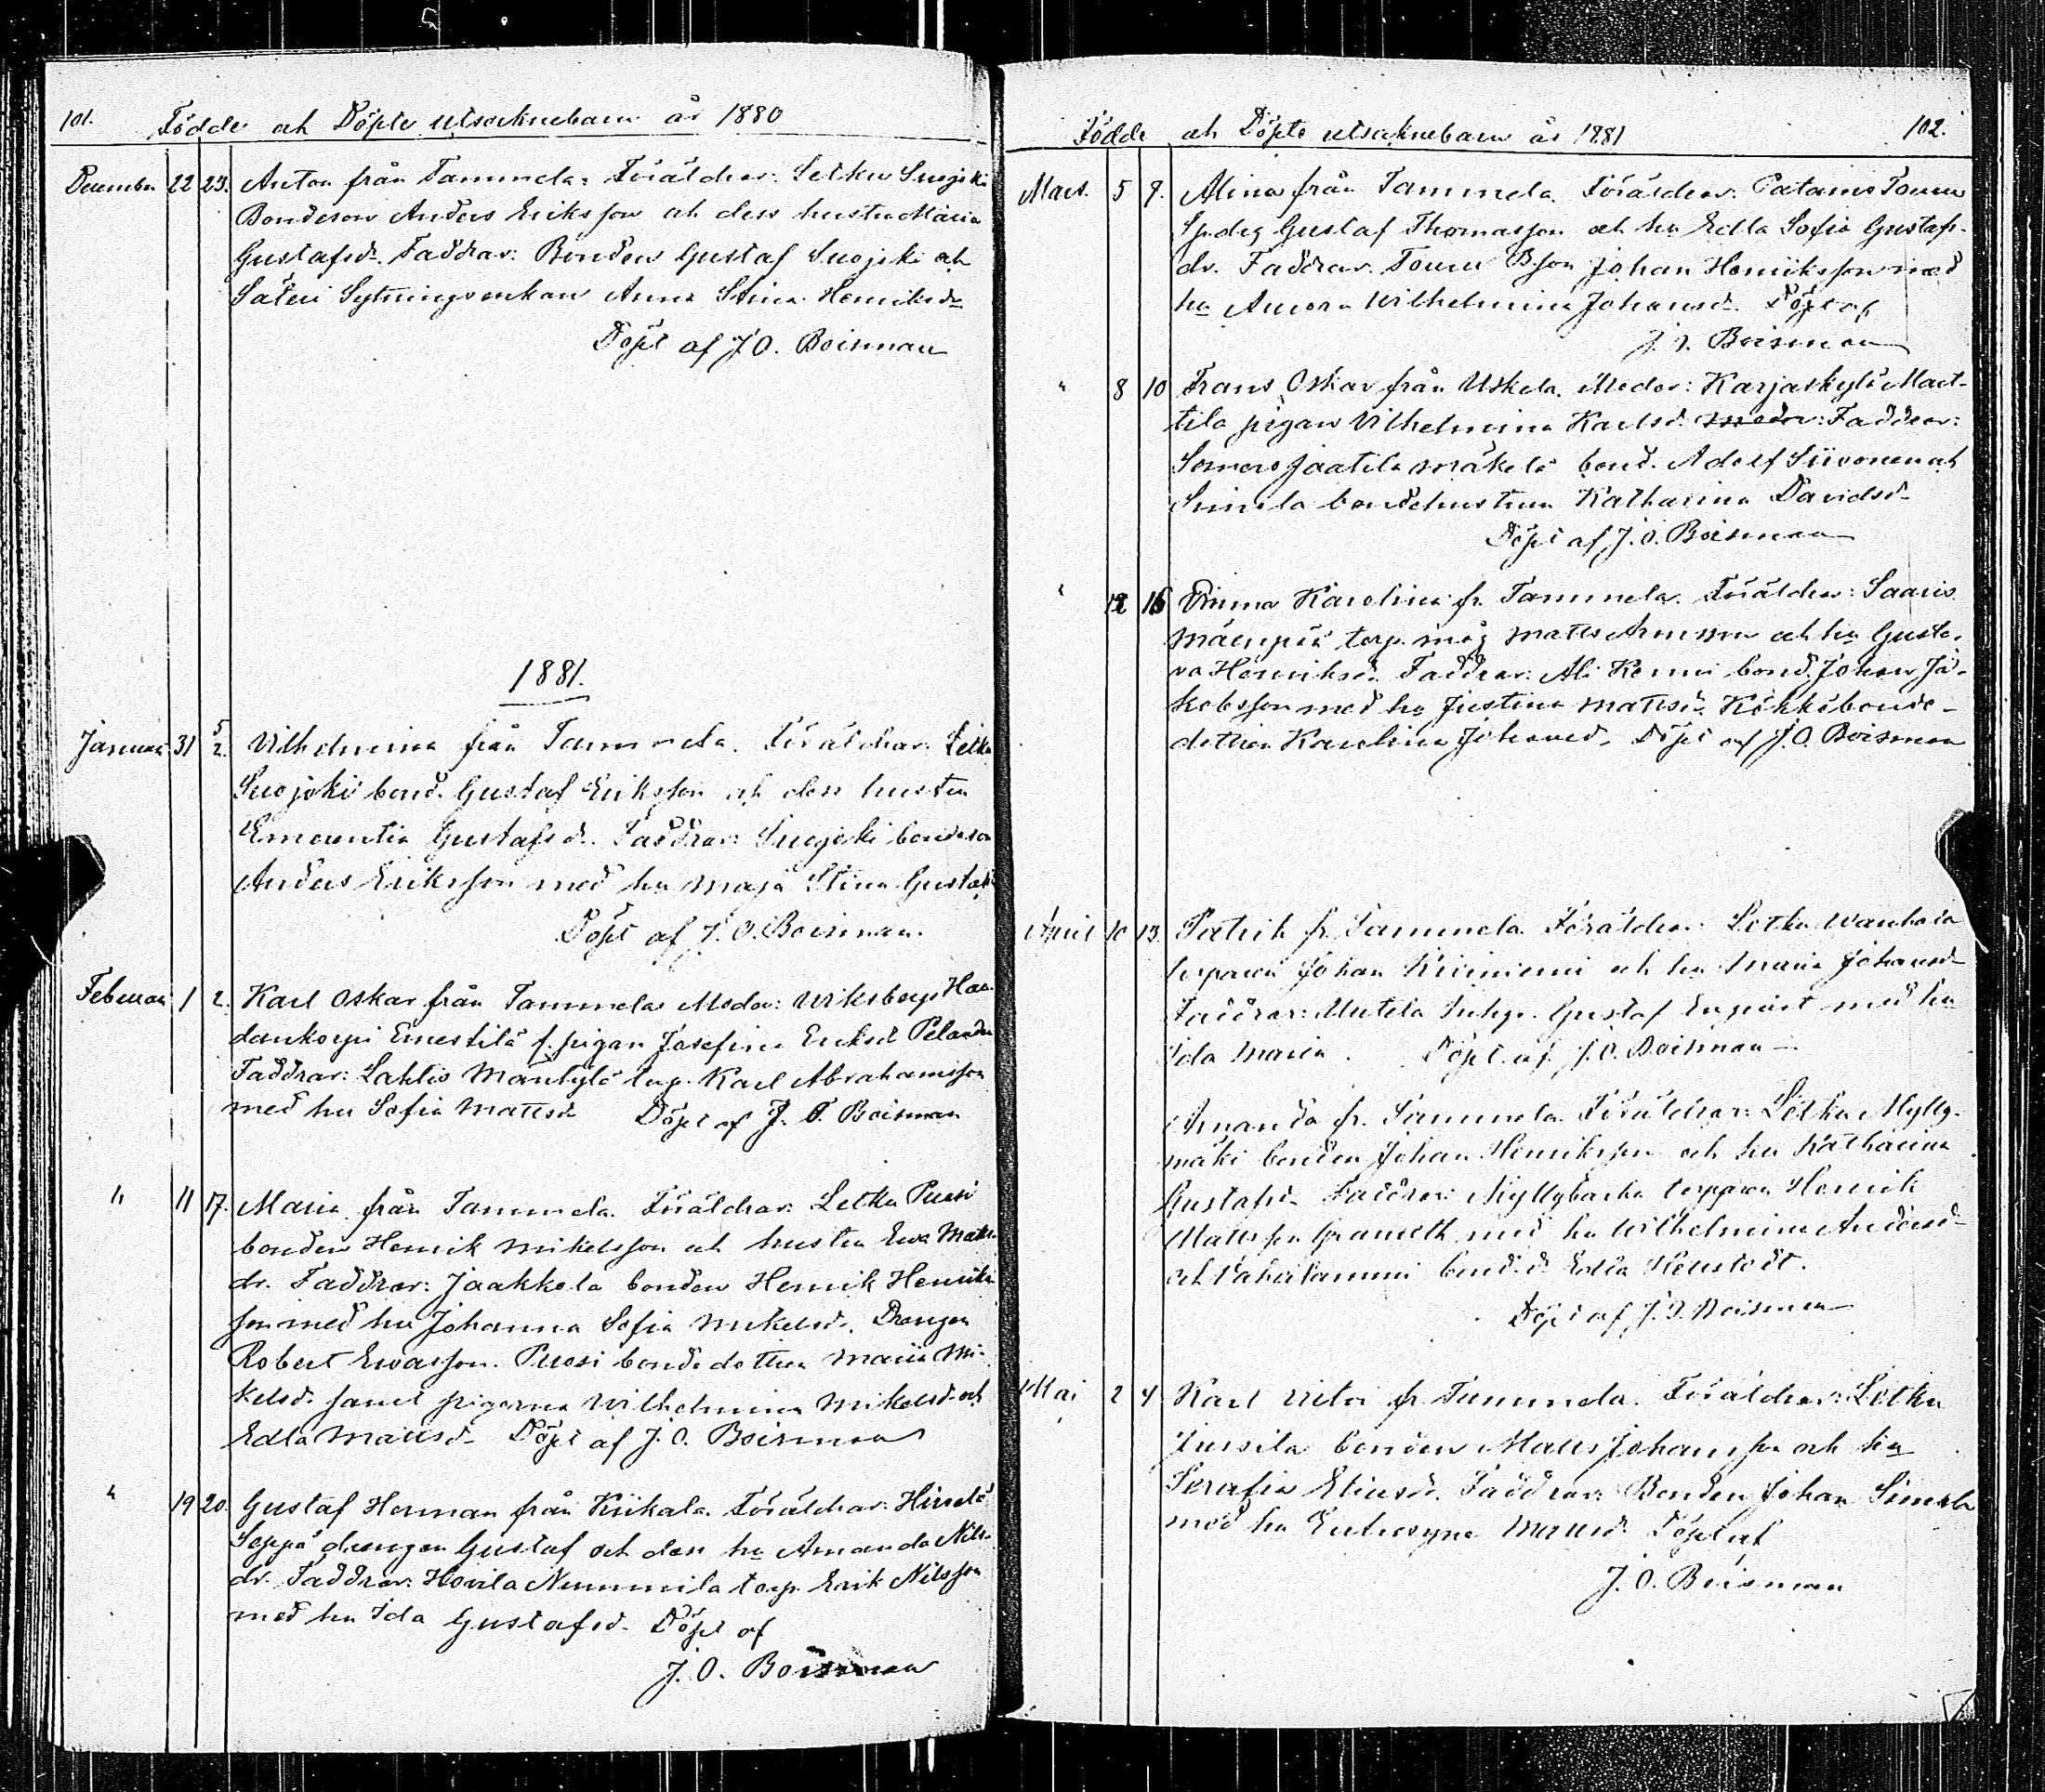 101. Födde och Döpte utsocknebarn år 1880
December 22 23. Anton från Tammela. Föräldrar: Letku Suojoki
Bondeson Anders Eriksson och dess hustru Maria
Gustafsdr. Faddrar: Bonden Gustaf Suojoki och
Säteri Sytningsenkan Anna Stina Henriksdr
Döpt af J O. Boisman
1881.
Januari 31 5/2. Vilhelmina från Tammela. Föräldrar: Letku
Suojoki bond. Gustaf Eriksson och dess hustru
Emerentia Gustafsd. Faddrar: Suojoki bondeson
Anders Eriksson med hu Maja Stina Gustafs
Döpt af J. O. Boisman.
Februari 1 2. Karl Oskar från Tammela Moder: Wiksbergs Haa-
dankorpi Ernestilä f. pigan Josefina Eriksd Pelander
Faddrar: Lahtis Mäntylä torp. Karl Abrahamsson
med hu Sofia Mattsd Döpt af J. O. Boisman
" 11 17. Maria från Tammela. Föräldrar: Letku Puosi
bonden Henrik Mikelsson och hustru Ewa Matts
dr. Faddrar: Jaakkola bonden Henrik Henriks
son med hu Johanna Sofia Mikelsd. Drängen
Robert Ewasson. Puosi bondedottren Maria Mi-
kelsd. samt pigorna Wilhelmina Mikelsd. och
Edla Mattsd. Döpt af J. O. Boisman
" 19 20. Gustaf Herman från Kiikala. Föräldrar: Hirvelä
Seppä drängen Gustaf och dess hu Amanda Nils
dr. Faddrar: Hovila Nummila torp. Erik Nilsson
med hu Ida Gustafsd. Döpt af
J. O. Boisman
Födde och Döpte utsocknebarn år 1881 102.
Mars. 5 7. Alina från Tammela. Föräldrar: Patamo Touru
Gustaf Thomasson och hu Edla Sofia Gustafs-
dr. Faddrar. Touru B.son Johan Henriksson med
hu Aurora Wilhelmina Johansd. Döpt af
J. O. Boisman
" 8 10 Frans Oskar från Uskela. Moder: Karjaskylä Mart-
tila pigan Vilhelmina Karlsd. moder: Faddrar:
Somero Jaatila Mäkelä bond. Adolf Siivonen och
Simola bondehustrun Katharina Davidsd
Döpt af J. O. Boisman
" 12 16 Emma Karolina fr. Tammela. Föräldrar: Saaris
Mäenpää torp. måg Matts och hu Gusta-
va Henriksd. Faddrar: Ali Konni bond. Johan Ja-
kobsson med hu Justina Mattsd. Kökkö bonde-
dottren Karolina Johansd. Döpt af J. O. Boisman
April 10 13. Patrik fr. Tammela. Föräldrar: Letku Wanhala
torparen Johan Kiviniemi och hu Maria Johansd
Faddrar: Mutela Inhys. Gustaf Engvist med hu
Ida Maria. Döpt af J. O. Boisman
Amanda fr. Tammela. Föräldrar: Letku Mylly-
mäki bonden Johan Henriksson och hu Katharina
Gustafsd. Faddrar: Myllybacka torparen Henrik
Mattsson Granroth med hu Wilhelmina Andersd
och Pahalammi bond.d. Edla
Döpt af J. O. Boisman
Mai 2 4 Karl Victor fr Tammela. Föräldrar: Letku
Jussila bonden Matts Johansson och hu
Serafia Eliasd. Faddrar: Bonden Johan Simola
med hu Eufrosyne Mattsd. Döpt af
J. O. Boisman